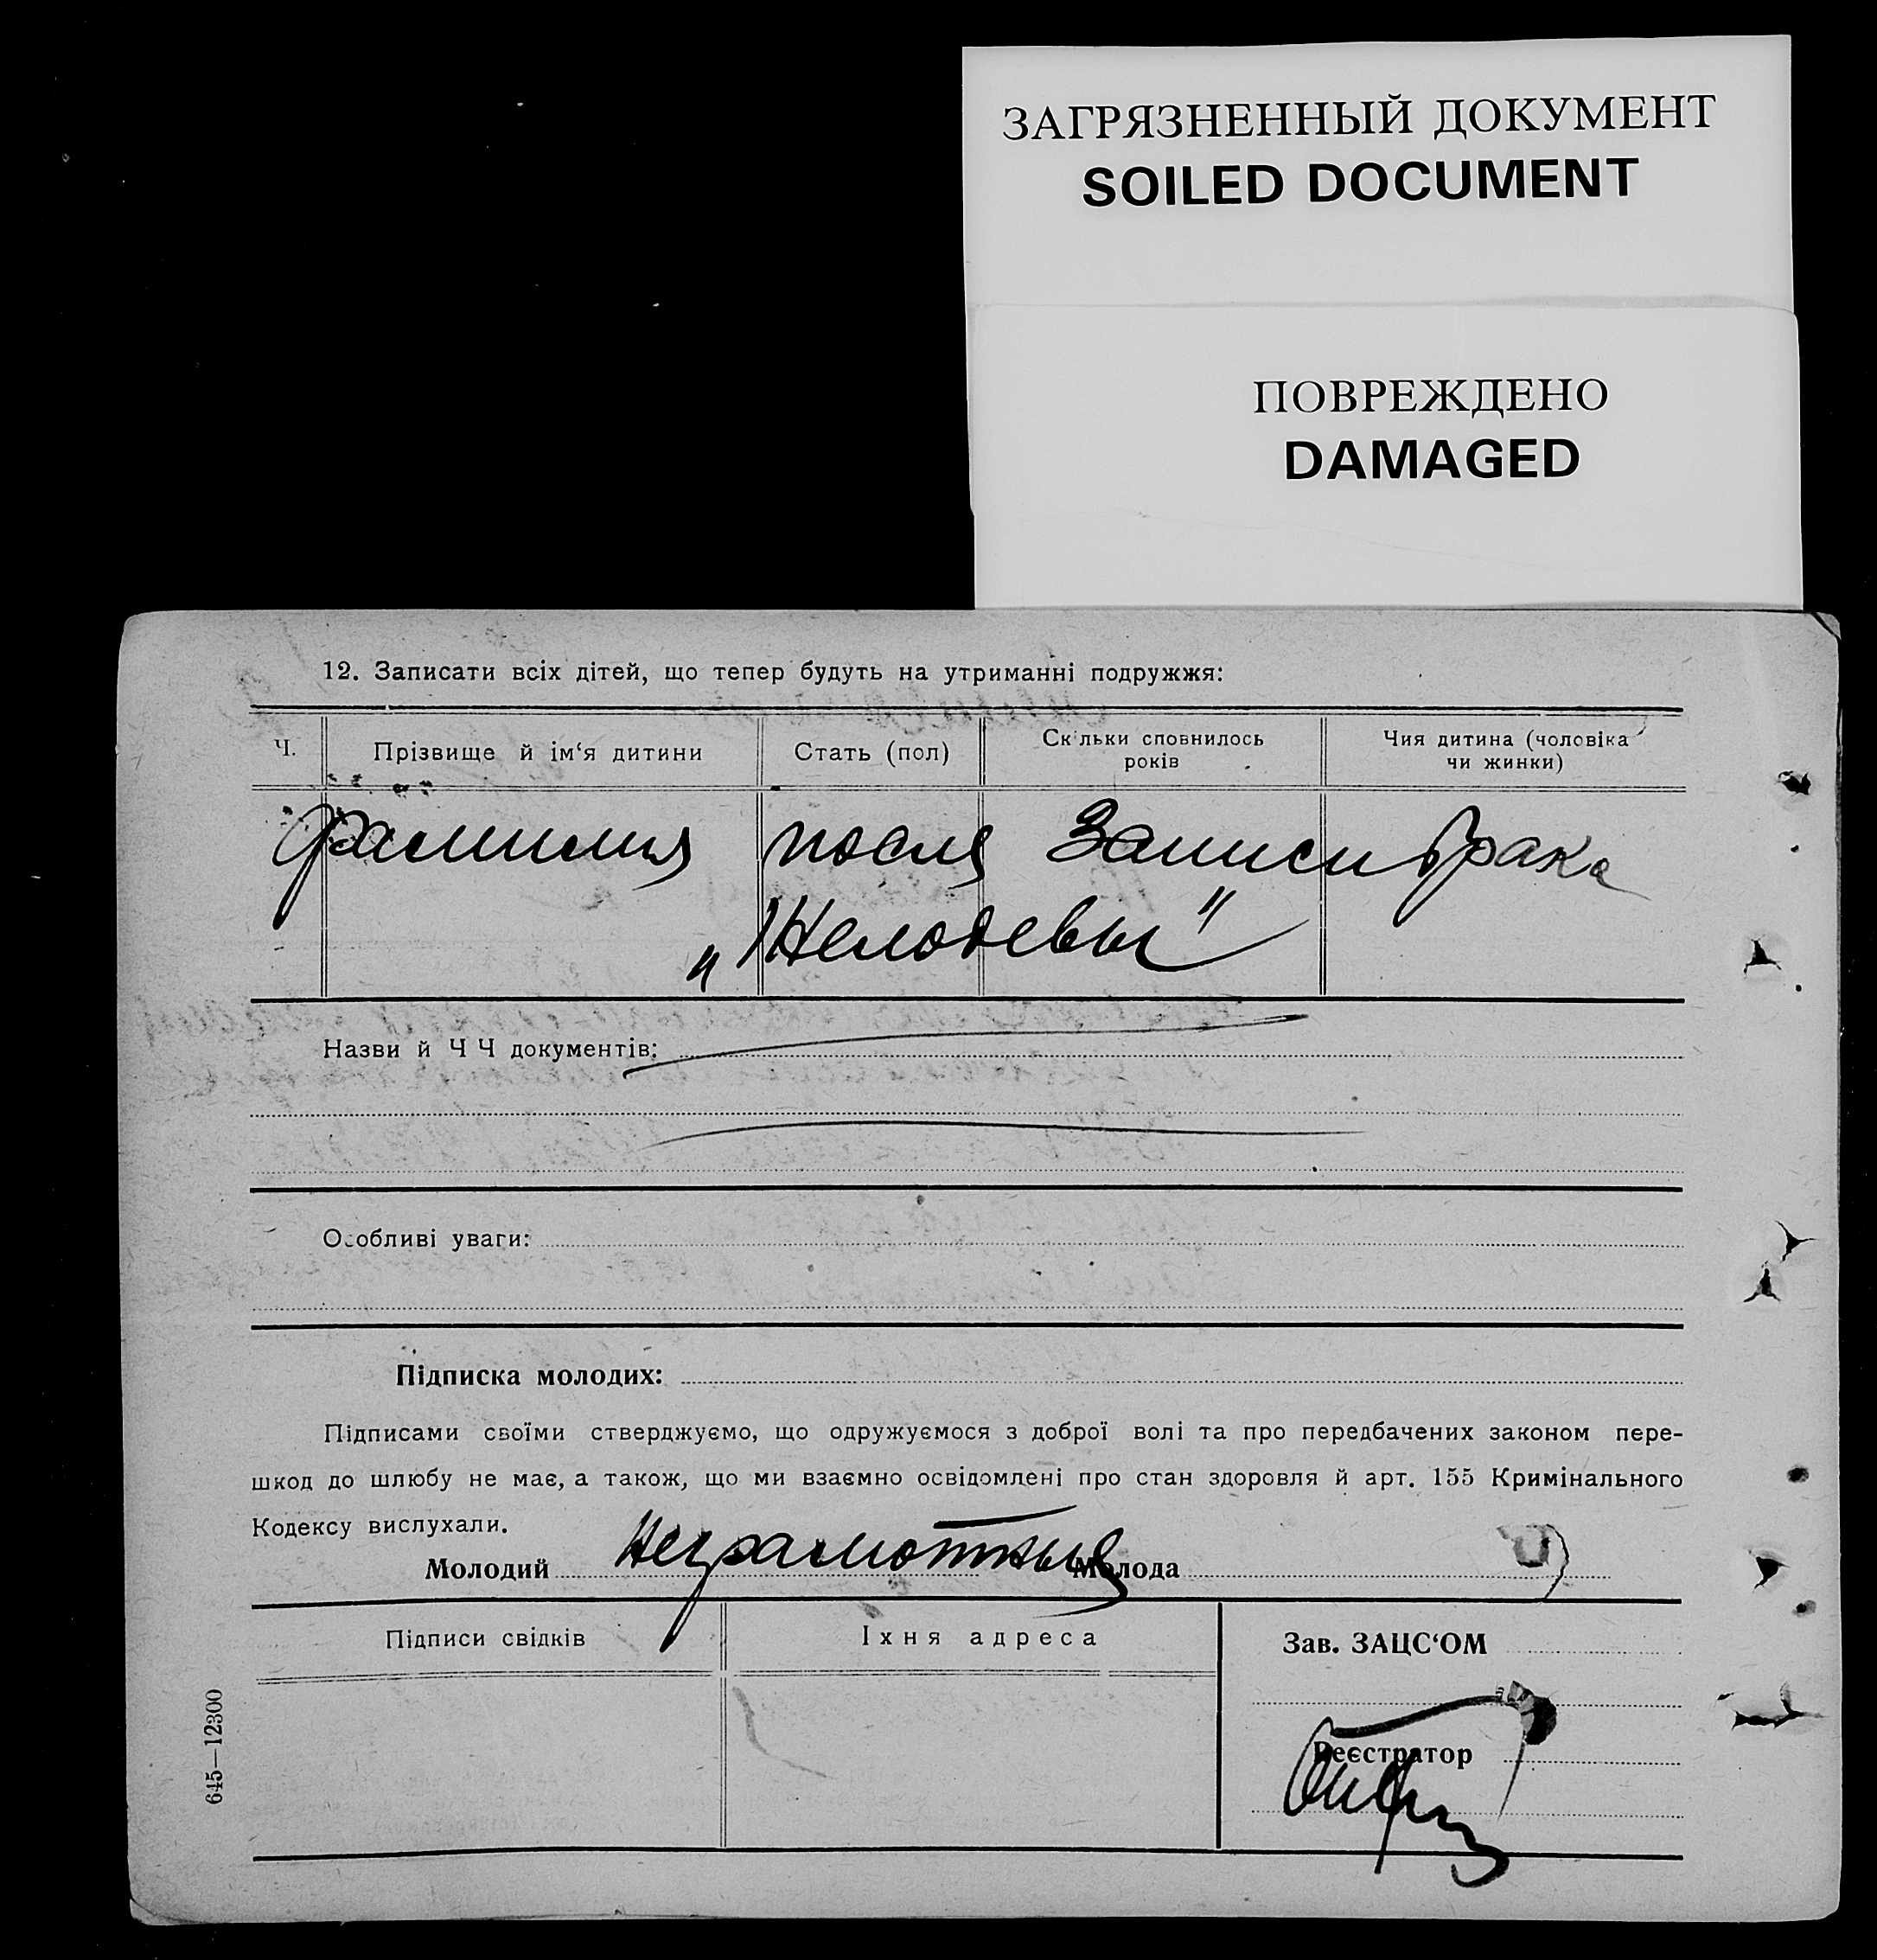 ЗАГРЯЗНЕННЫЙ ДОКУМЕНТ
SOILED DOCUMENT
ПОВРЕЖДЕНО
DAMAGED
12. Записати всіх дітей, що тепер будуть на утриманні подружжя:
Ч. Прізвище й ім‘я дитини Стать (пол) Скільки сповнилось років Чия дитина (чоловіка чи жинки)
Фамилия после Записи брака
Назви й Ч Ч документів:
Особливі уваги:
Підписка молодих:
Підписами своїми стверджуємо, що одружуємося з доброї волі та про передбачених законом пере-
шкод до шлюбу не має, а також, що ми взаємно освідомлені про стан здоровля й арт. 155 Кримінального
Кодексу вислухали.
Молодий Неграмотные Молода
Підписи свідків Їхня адреса Зав. ЗАЦС‘ОМ
Реєстратор
645—12300